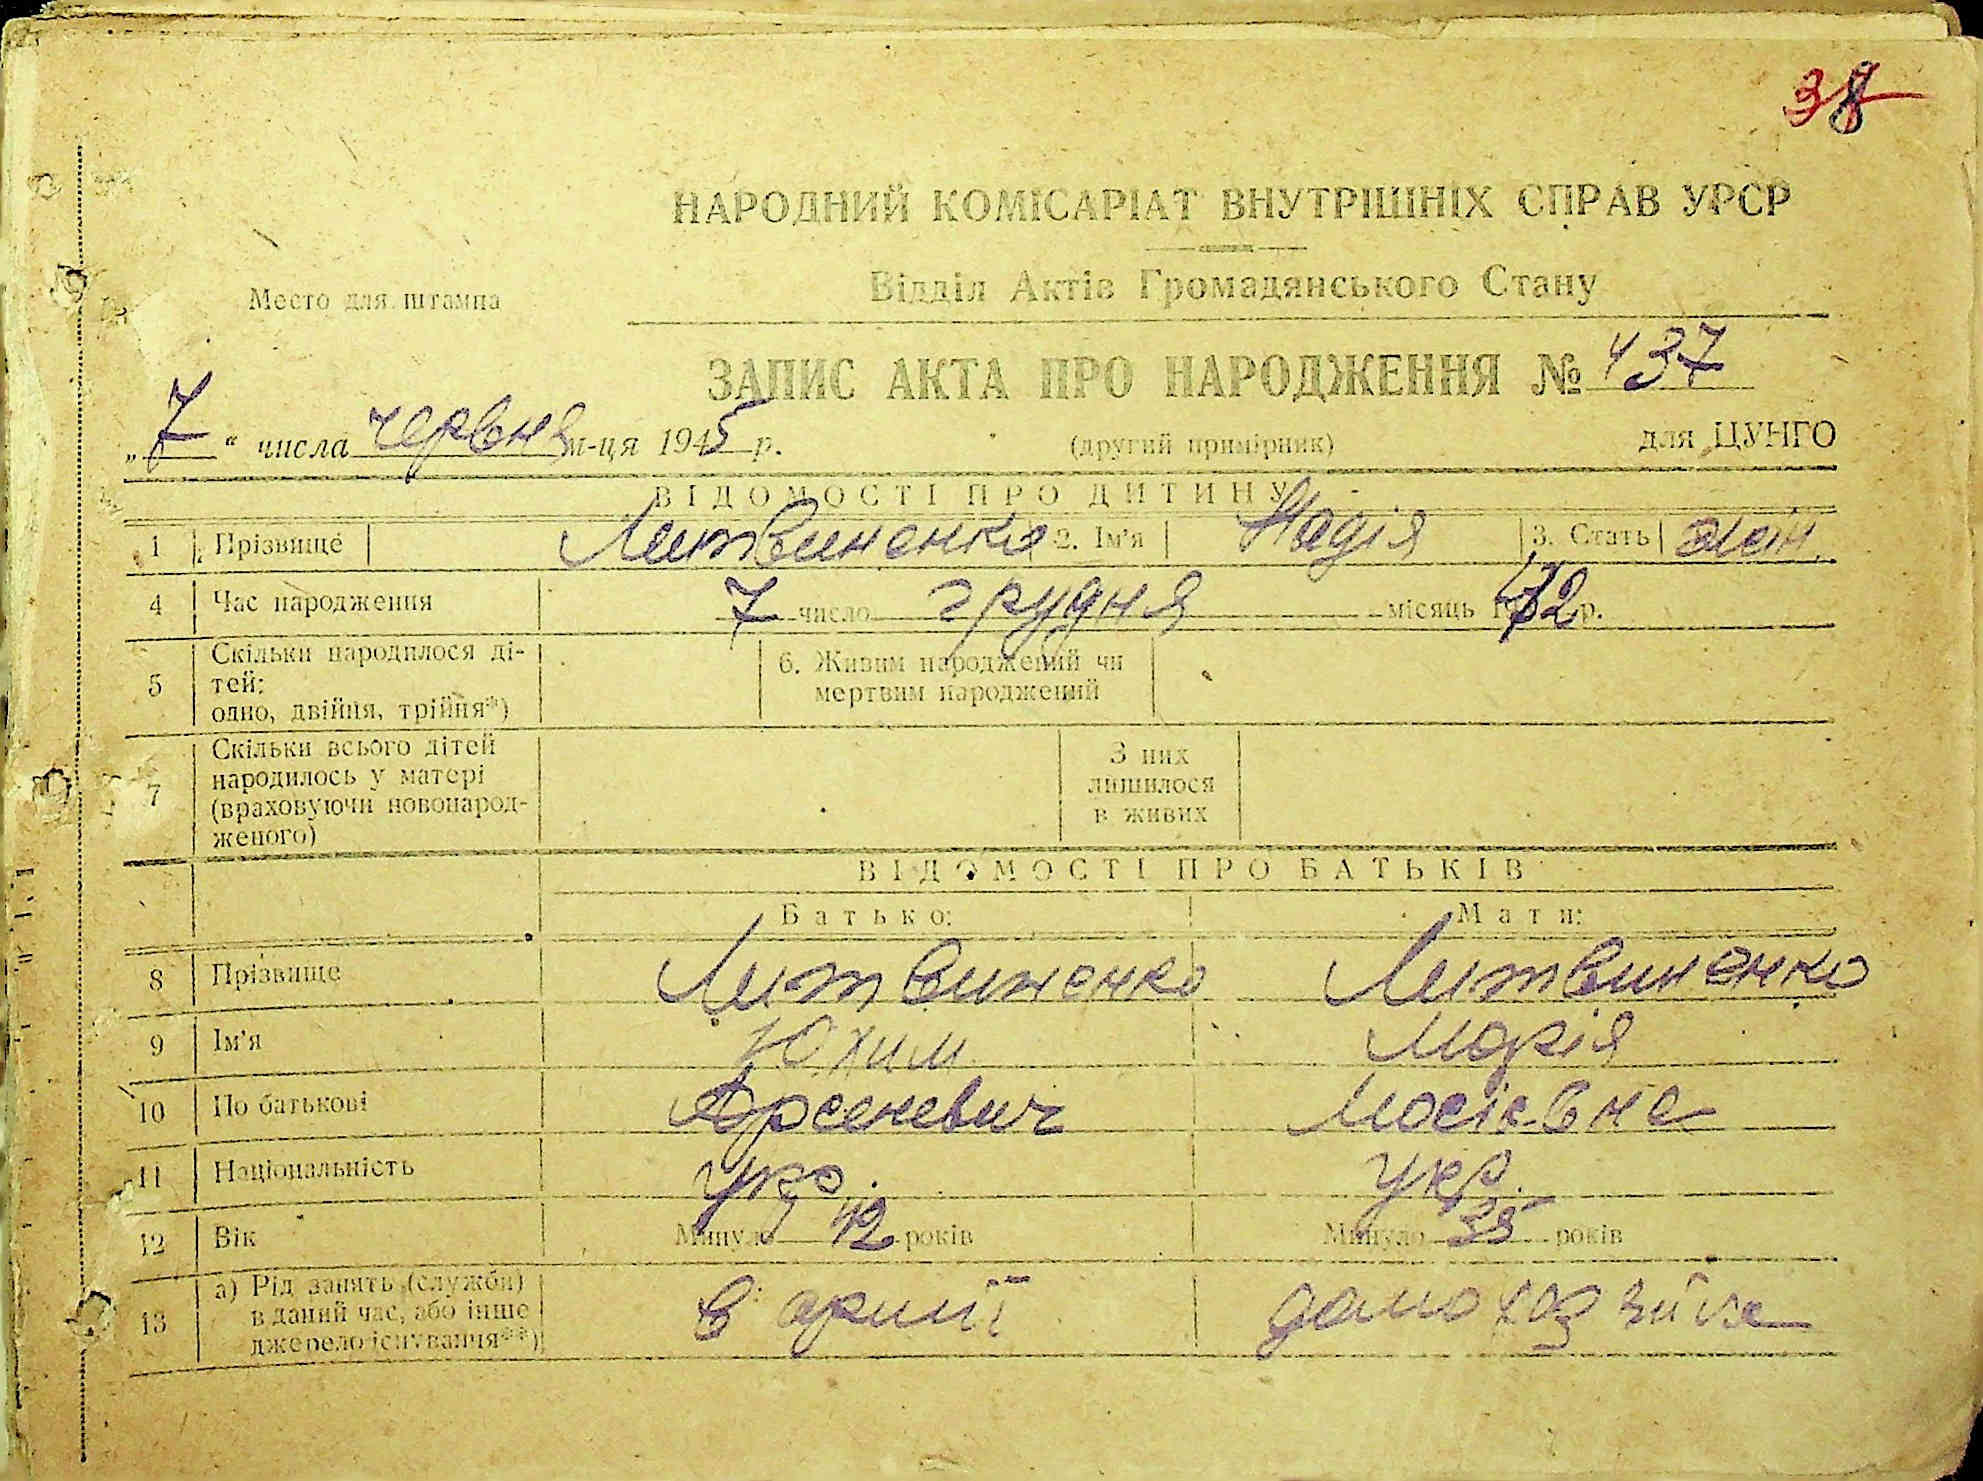 38
НАРОДНИЙ КОМІСАРІАТ ВНУТРІШНІХ СПРАВ УРСР
Відділ Актів Громадянського Стану
Место для штампа
ЗАПИС АКТА ПРО НАРОДЖЕННЯ № 437
„7“ числа червня м-ця 1945 р. (другий примірник) для ЦУНГО
ВІДОМОСТІ ПРО ДИТИНУ
1 Прізвище Литвиненко 2. Ім'я Надія 3. Стать жін.
4 Час народження 7 число грудня місяць 19 р.
5 Скільки народилося ді-
тей:
одно, двійня, трійня*)
6. Живим народжений чи
мертвим народжений
7 Скільки всього дітей
народилось у матері
(враховуючи новонарод-
женого)
З них
лишилося
в живих
ВІДОМОСТІ ПРО БАТЬКІВ
Батько: Мати:
8 Прізвище Литвиненко Литвиненко
9 Ім'я Юхим Марія
10 По батькові Арсеневич Мосіївна
11 Національність укр. укр.
12 Вік Минуло 42 років Минуло 35 років
13 а) Рід занять (служби)
в даний час, або інше
джерело існування**)
в армії домохазяйка